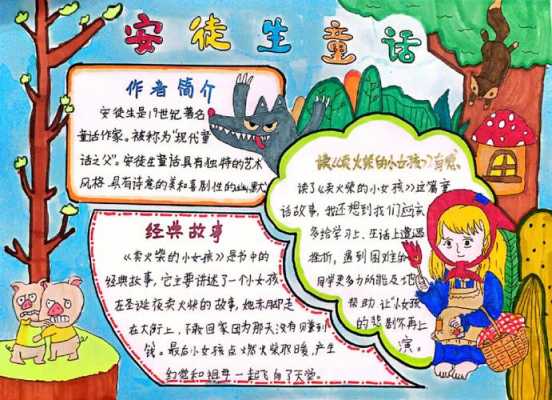 安徒生童话
作者简介
安徒生是19世纪著名
童话作家。被称为"现代童
话之父"。安徒生童话具有独特的艺术
风格,具有诗意的美和喜剧性的幽默
读《卖火柴的小女孩》有感
读了《卖火柴的小女孩》这篇童
话故事,我还想到我们应
多给学习上、生活上遭遇
挫折,遇到困难的
同学更多力所能及地
帮助,让小女孩
的悲剧不再上
演。
经典故事
《卖火柴的小女孩》是书中的
经典故事,它主要讲述了一个小女孩
在圣诞夜卖火柴的故事,她赤脚走
在大街上,不敢回家因为那天没有赚到
钱。最后小女孩点燃火柴取暖,产生
幻觉和祖母一起飞向了天堂。